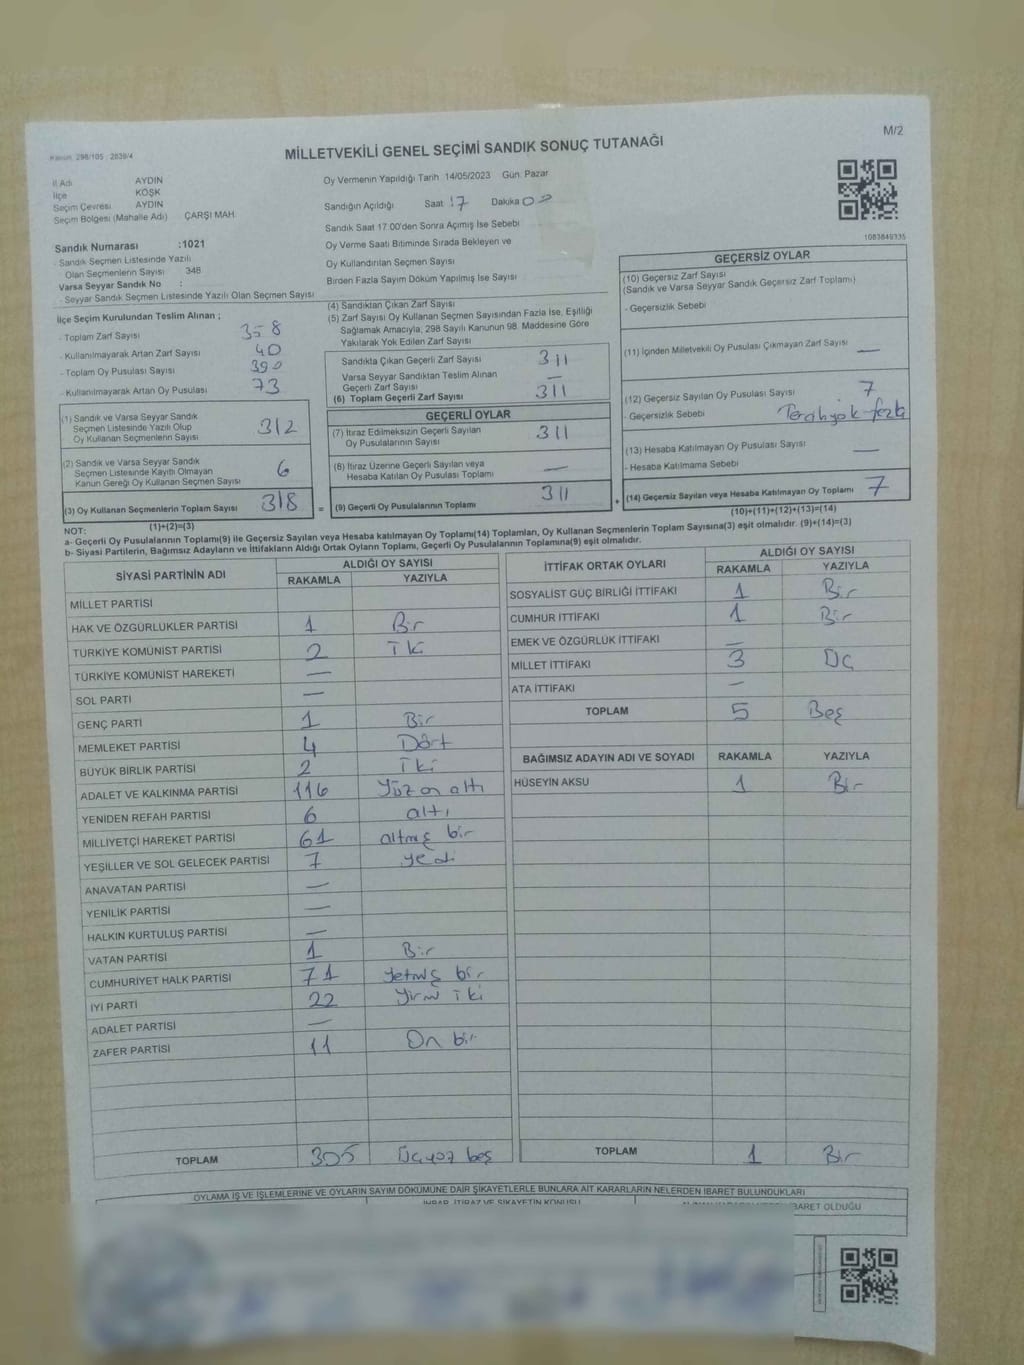 M/2
Kanun 298/105 2839/4
MİLLETVEKİLİ GENEL SEÇİMİ SANDIK SONUÇ TUTANAĞI
İl Adı AYDIN
İlçe KÖŞK
Seçim Çevresi AYDIN
Seçim Bölgesi (Mahalle Adı) ÇARŞI MAH
Sandık Numarası :1021
- Sandık Seçmen Listesinde Yazılı
Olan Seçmenlerin Sayısı 348
Varsa Seyyar Sandık No :
- Seyyar Sandık Seçmen Listesinde Yazılı Olan Seçmen Sayısı
Oy Vermenin Yapıldığı Tarih 14/05/2023 Gün. Pazar
Sandığın Açıldığı Saat 17 Dakika 00
Sandık Saat 17.00'den Sonra Açımış İse Sebebi
Oy Verme Saati Bitiminde Sırada Bekleyen ve
Oy Kullandırılan Seçmen Sayısı
Birden Fazla Sayım Döküm Yapılmış İse Sayısı
1083849335
İlçe Seçim Kurulundan Teslim Alınan ;
- Toplam Zarf Sayısı 358
- Kullanılmayarak Artan Zarf Sayısı 40
- Toplam Oy Pusulası Sayısı 390
- Kullanılmayarak Artan Oy Pusulası 73
(1) Sandık ve Varsa Seyyar Sandık
Seçmen Listesinde Yazılı Olup
Oy Kullanan Seçmenlerin Sayısı 312
(2) Sandık ve Varsa Seyyar Sandık
Seçmen Listesinde Kayıtlı Olmayan
Kanun Gereği Oy Kullanan Seçmen Sayısı 6
(3) Oy Kullanan Seçmenlerin Toplam Sayısı 318 =
(1)+(2)=(3)
(4) Sandıktan Çıkan Zarf Sayısı
(5) Zarf Sayısı Oy Kullanan Seçmen Sayısından Fazla İse, Eşitliği
Sağlamak Amacıyla, 298 Sayılı Kanunun 98. Maddesine Göre
Yakılarak Yok Edilen Zarf Sayısı
Sandıkta Çıkan Geçerli Zarf Sayısı 311
Varsa Seyyar Sandıktan Teslim Alınan
Geçerli Zarf Sayısı —
(6) Toplam Geçerli Zarf Sayısı 311
GEÇERLİ OYLAR
(7) İtiraz Edilmeksizin Geçerli Sayılan
Oy Pusulalarının Sayısı 311
(8) İtiraz Üzerine Geçerli Sayılan veya
Hesaba Katılan Oy Pusulası Toplamı —
(9) Geçerli Oy Pusulalarının Toplamı 311 +
GEÇERSİZ OYLAR
(10) Geçersiz Zarf Sayısı
(Sandık ve Varsa Seyyar Sandık Geçersiz Zarf Toplamı)
- Geçersizlik Sebebi
(11) İçinden Milletvekili Oy Pusulası Çıkmayan Zarf Sayısı —
(12) Geçersiz Sayılan Oy Pusulası Sayısı 7
- Geçersizlik Sebebi
(13) Hesaba Katılmayan Oy Pusulası Sayısı —
- Hesaba Katılmama Sebebi
(14) Geçersiz Sayılan veya Hesaba Katılmayan Oy Toplamı 7
(10)+(11)+(12)+(13)=(14)
NOT:
a- Geçerli Oy Pusulalarının Toplamı(9) ile Geçersiz Sayılan veya Hesaba katılmayan Oy Toplamı(14) Toplamları, Oy Kullanan Seçmenlerin Toplam Sayısına(3) eşit olmalıdır. (9)+(14)=(3)
b- Siyasi Partilerin, Bağımsız Adayların ve İttifakların Aldığı Ortak Oyların Toplamı, Geçerli Oy Pusulalarının Toplamına(9) eşit olmalıdır.
SİYASİ PARTİNİN ADI ALDIĞI OY SAYISI
RAKAMLA YAZIYLA
MİLLET PARTİSİ
HAK VE ÖZGÜRLÜKLER PARTİSİ 1 Bir
TÜRKİYE KOMÜNİST PARTİSİ 2 İki
TÜRKİYE KOMÜNİST HAREKETİ —
SOL PARTİ —
GENÇ PARTİ 1 Bir
MEMLEKET PARTİSİ 4 Dört
BÜYÜK BİRLİK PARTİSİ 2 İki
ADALET VE KALKINMA PARTİSİ 116 Yüz on altı
YENİDEN REFAH PARTİSİ 6 altı
MİLLİYETÇİ HAREKET PARTİSİ 61 altmış bir
YEŞİLLER VE SOL GELECEK PARTİSİ 7 yedi
ANAVATAN PARTİSİ —
YENİLİK PARTİSİ —
HALKIN KURTULUŞ PARTİSİ —
VATAN PARTİSİ 1 Bir
CUMHURİYET HALK PARTİSİ 71 yetmiş bir
İYİ PARTİ 22 yirmi iki
ADALET PARTİSİ —
ZAFER PARTİSİ 11 On bir
TOPLAM 305 Üçyüz beş
İTTİFAK ORTAK OYLARI ALDIĞI OY SAYISI
RAKAMLA YAZIYLA
SOSYALİST GÜÇ BİRLİĞİ İTTİFAKI 1 Bir
CUMHUR İTTİFAKI 1 Bir
EMEK VE ÖZGÜRLÜK İTTİFAKI —
MİLLET İTTİFAKI 3 Üç
ATA İTTİFAKI —
TOPLAM 5 Beş
BAĞIMSIZ ADAYIN ADI VE SOYADI RAKAMLA YAZIYLA
HÜSEYİN AKSU 1 Bir
TOPLAM 1 Bir
OYLAMA İŞ VE İŞLEMLERİNE VE OYLARIN SAYIM DÖKÜMÜNE DAİR ŞİKAYETLERLE BUNLARA AİT KARARLARIN NELERDEN İBARET BULUNDUKLARI
İHBAR, İTİRAZ VE ŞİKAYETİN KONUSU
İBARET OLDUĞU